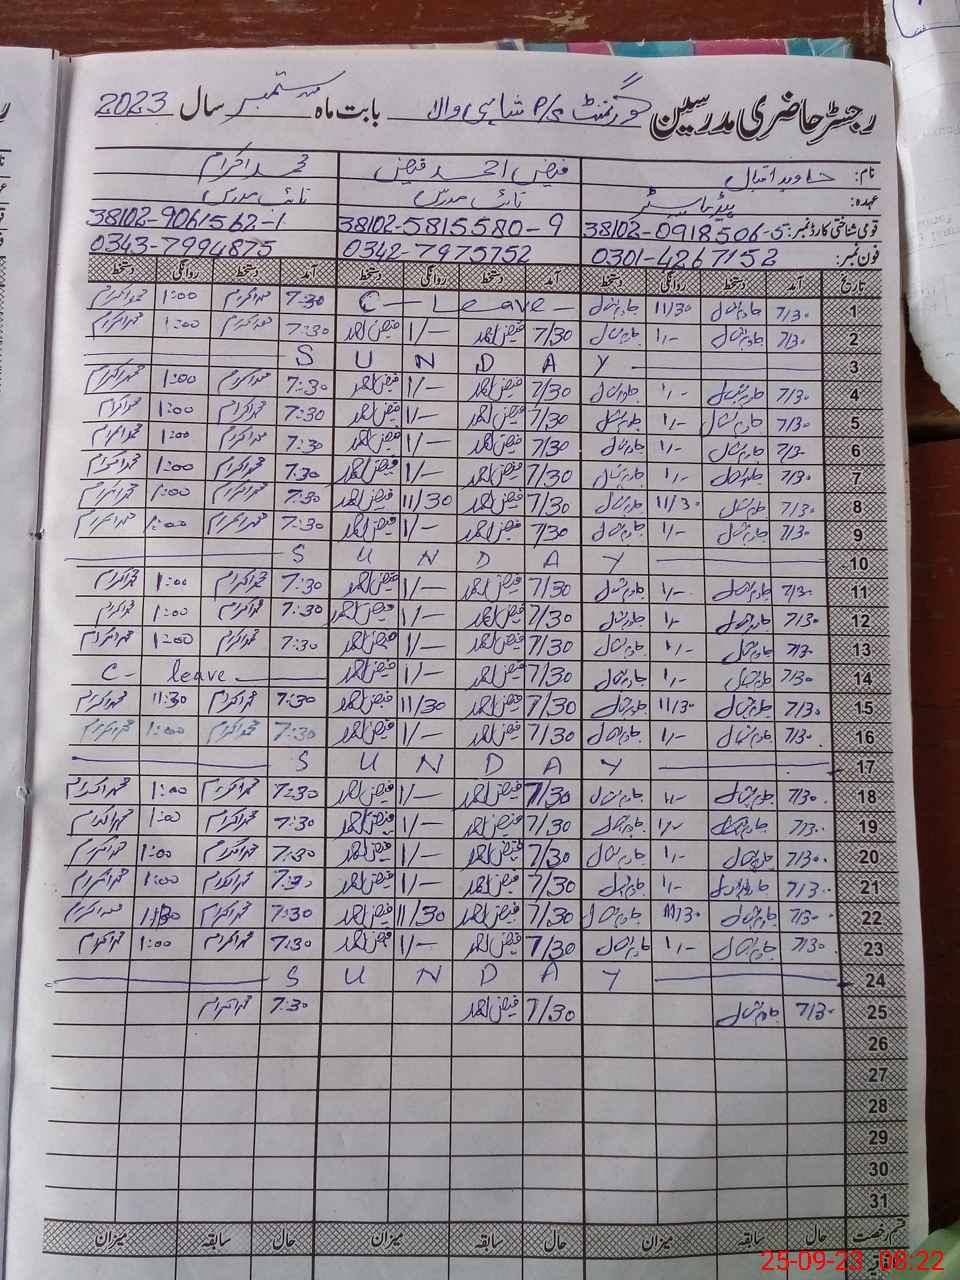 رجسٹر حاضری مدرسین گورنمنٹ P/S شاہی والا بابت ماہ ستمبر سال 2023
نام: جاوید اقبال فیض احمد فیض محمد اکرام
عہدہ: ہیڈ ماسٹر نائب مدرس نائب مدرس
قومی شناختی کارڈ نمبر: 38102-0918506-5 38102-5815580-9 38102-9061562-1
فون نمبر: 0301-4267152 0342-7975752 0343-7994875
تاریخ آمد دستخط روانگی دستخط آمد دستخط روانگی دستخط آمد دستخط روانگی دستخط
1 7/30 جاوید اقبال 11/30 جاوید اقبال C-Leave- 7:30 محمد اکرام 1:00 محمد اکرام
2 7/30 جاوید اقبال 1/- جاوید اقبال 7/30 فیض احمد 1/- فیض احمد 7:30 محمد اکرام 1:00 محمد اکرام
3 S U N D A Y
4 7/30 جاوید اقبال 1/- جاوید اقبال 7/30 فیض احمد 1/- فیض احمد 7:30 محمد اکرام 1:00 محمد اکرام
5 7/30 جاوید اقبال 1/- جاوید اقبال 7/30 فیض احمد 1/- فیض احمد 7:30 محمد اکرام 1:00 محمد اکرام
6 7/30 جاوید اقبال 1/- جاوید اقبال 7/30 فیض احمد 1/- فیض احمد 7:30 محمد اکرام 1:00 محمد اکرام
7 7/30 جاوید اقبال 1/- جاوید اقبال 7/30 فیض احمد 1/- فیض احمد 7:30 محمد اکرام 1:00 محمد اکرام
8 7/30 جاوید اقبال 11/30 جاوید اقبال 7/30 فیض احمد 11/30 فیض احمد 7:30 محمد اکرام 1:00 محمد اکرام
9 7/30 جاوید اقبال 1/- جاوید اقبال 7/30 فیض احمد 1/- فیض احمد 7:30 محمد اکرام 1:00 محمد اکرام
10 S U N D A Y
11 7/30 جاوید اقبال 1/- جاوید اقبال 7/30 فیض احمد 1/- فیض احمد 7:30 محمد اکرام 1:00 محمد اکرام
12 7/30 جاوید اقبال 1/- جاوید اقبال 7/30 فیض احمد 1/- فیض احمد 7:30 محمد اکرام 1:00 محمد اکرام
13 7/30 جاوید اقبال 1/- جاوید اقبال 7/30 فیض احمد 1/- فیض احمد 7:30 محمد اکرام 1:00 محمد اکرام
14 7/30 جاوید اقبال 1/- جاوید اقبال 7/30 فیض احمد 1/- فیض احمد C- leave
15 7/30 جاوید اقبال 11/30 جاوید اقبال 7/30 فیض احمد 11/30 فیض احمد 7:30 محمد اکرام 11:30 محمد اکرام
16 7/30 جاوید اقبال 1/- جاوید اقبال 7/30 فیض احمد 1/- فیض احمد 7:30 محمد اکرام 1:00 محمد اکرام
17 S U N D A Y
18 7/30 جاوید اقبال 1/- جاوید اقبال 7/30 فیض احمد 1/- فیض احمد 7:30 محمد اکرام 1:00 محمد اکرام
19 7/30 جاوید اقبال 1/- جاوید اقبال 7/30 فیض احمد 1/- فیض احمد 7:30 محمد اکرام 1:00 محمد اکرام
20 7/30 جاوید اقبال 1/- جاوید اقبال 7/30 فیض احمد 1/- فیض احمد 7:30 محمد اکرام 1:00 محمد اکرام
21 7/30 جاوید اقبال 1/- جاوید اقبال 7/30 فیض احمد 1/- فیض احمد 7:30 محمد اکرام 1:00 محمد اکرام
22 7/30 جاوید اقبال 11/30 جاوید اقبال 7/30 فیض احمد 11/30 فیض احمد 7:30 محمد اکرام 11:30 محمد اکرام
23 7/30 جاوید اقبال 1/- جاوید اقبال 7/30 فیض احمد 1/- فیض احمد 7:30 محمد اکرام 1:00 محمد اکرام
24 S U N D A Y
25 7/30 جاوید اقبال 7/30 فیض احمد 7:30 محمد اکرام
26
27
28
29
30
31
قسم رخصت حال سابقہ میزان حال سابقہ میزان حال سابقہ میزان
25-09-23 08:22